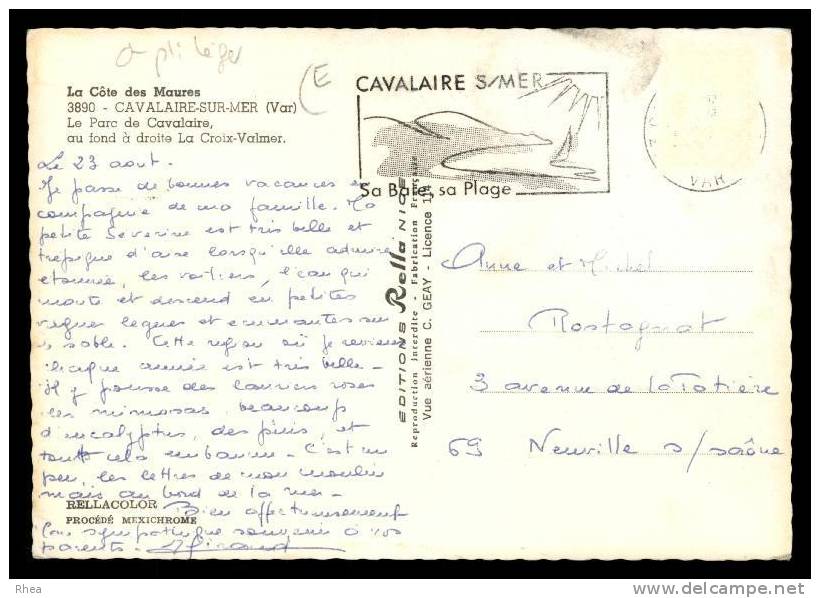 pli léger
(E
La Côte des Maures
3890 - CAVALAIRE-SUR-MER (Var)
Le Parc de Cavalaire,
au fond à droite La Croix-Valmer.
CAVALAIRE S/MER
Sa Baie, sa Plage
VAR
Le 23 aout.
Je passe de bonnes vacances en
compagnie de ma famille. La
petite Severine est très belle et
trepigne d'aise lorsqu'elle admire
étonnée, les voiliers, l'eau qui
monte et descend en petites
vagues legeres et ecumantes sur
le sable. Cette region où je reviens
chaque année est très belle -
Il y pousse des lauriers roses
des mimosas, beaucoup
d'eucalyptus, des pins, et
tout cela embaume - C'est un
peu, les lettres de mon moulin
mais au bord de la mer -
Bien affectueusement
mon sympathique souvenir à vos
parents -
RELLACOLOR
PROCÉDÉ MEXICHROME
EDITIONS Rella NICE
Reproduction interdite - Fabrication Française
Vue aérienne C. GEAY - Licence
Anne et Michel
Rostagnat
3 avenue de la Tatière
69 Neuville s/saône
Rhea
www.delcampe.net